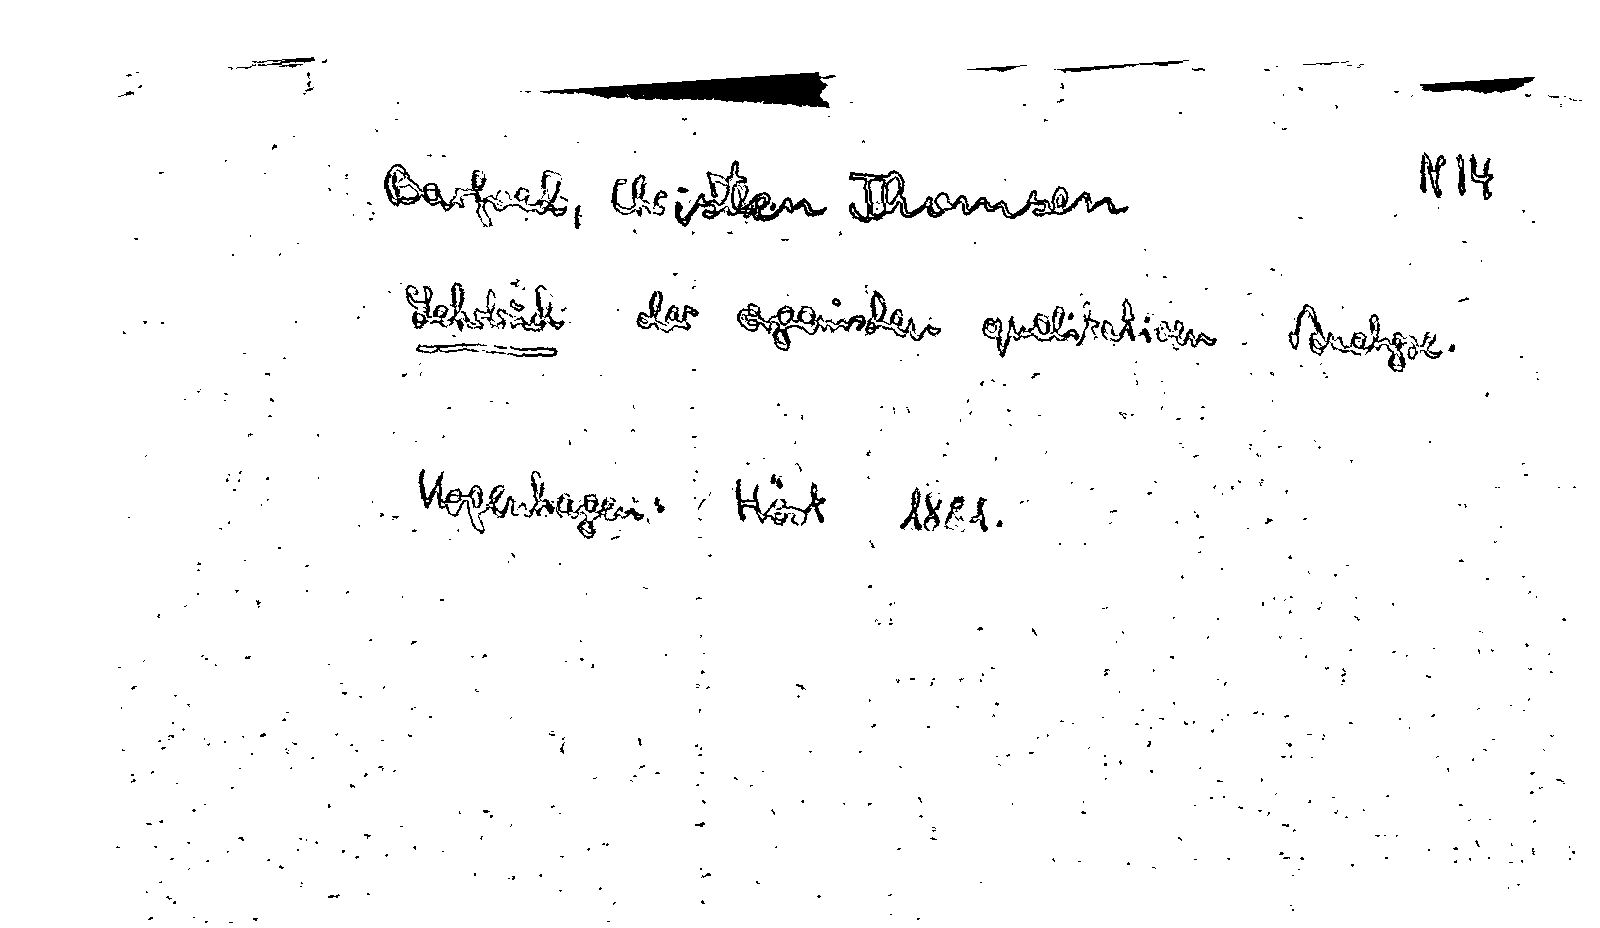 Barfoed, Christen Thomsen N 14
Lehrbuch der organischen qualitativen Analyse.
Kopenhagen: Höst 1881.